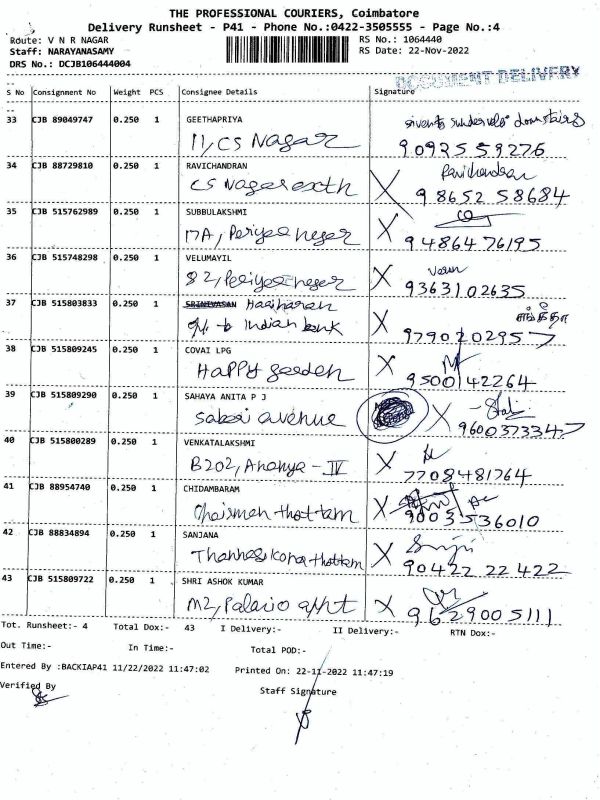 THE PROFESSIONAL COURIERS, Coimbatore
Delivery Runsheet - P41 - Phone No.:0422-3505555 - Page No.:4
Route: V N R NAGAR
RS No.: 1064440
Staff: NARAYANASAMY
RS Date: 22-Nov-2022
DRS No.: DCJB106444004
DOCUMENT DELIVERY
S No Consignment No Weight PCS Consignee Details Signature
33 CJB 89049747 0.250 1 GEETHAPRIYA
11, CS Nagar 9092559276
34 CJB 88729810 0.250 1 RAVICHANDRAN Ravichandran
CS Nagar X 98652 58684
35 CJB 515762989 0.250 1 SUBBULAKSHMI
17A, Periya neger X 9486476195
36 CJB 515748298 0.250 1 VELUMAYIL
82, Periya neger X 9363102635
37 CJB 515803833 0.250 1 SRINIVASAN Hariharan
opp. to Indian bank X 9790202957
38 CJB 515809245 0.250 1 COVAI LPG
Happy Geeden X 9500142264
39 CJB 515809290 0.250 1 SAHAYA ANITA P J
Sabari avenue X 9600373347
40 CJB 515800289 0.250 1 VENKATALAKSHMI
B202, Ananya - IV X 7708481764
41 CJB 88954740 0.250 1 CHIDAMBARAM
thottam X 9003536010
42 CJB 88834894 0.250 1 SANJANA
thottam X 90422 22 422
43 CJB 515809722 0.250 1 SHRI ASHOK KUMAR
M2, appt X 9629005111
Tot. Runsheet:- 4 Total Dox:- 43 I Delivery:- II Delivery:- RTN Dox:-
Out Time:- In Time:- Total POD:-
Entered By :BACKIAP41 11/22/2022 11:47:02 Printed On: 22-11-2022 11:47:19
Verified By Staff Signature